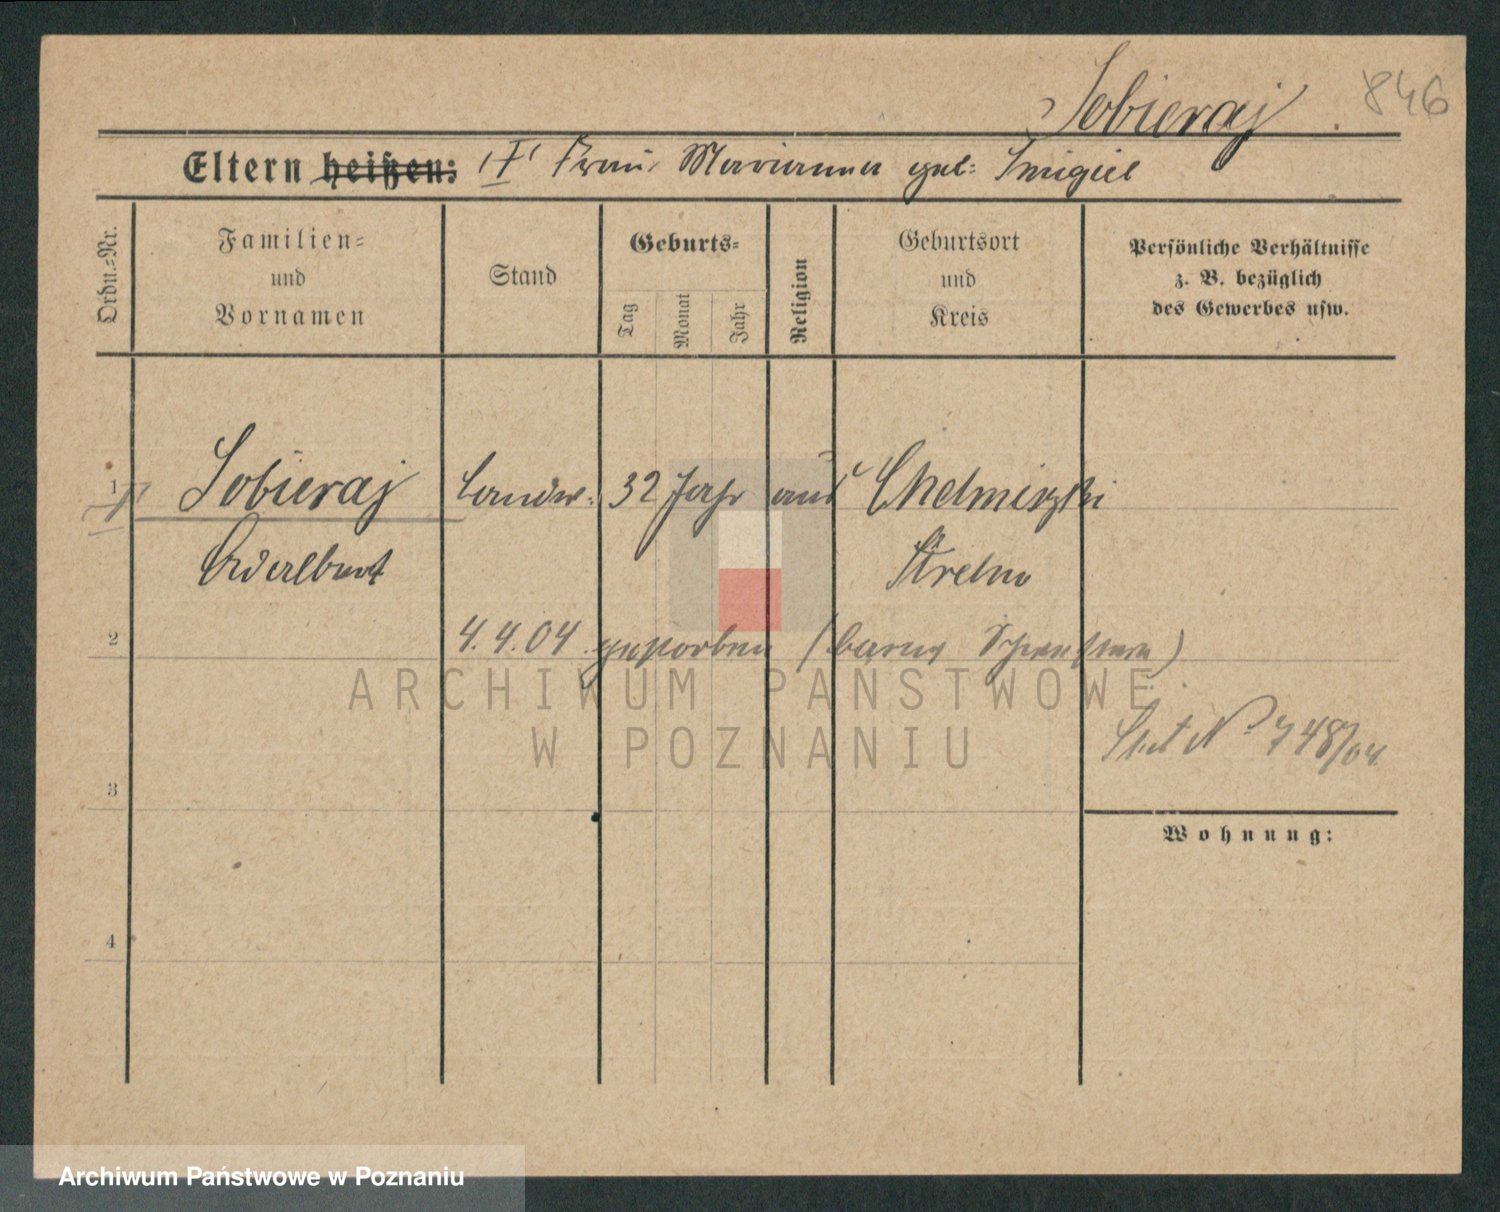 Sobieraj 846
Eltern heißen: I Frau Marianna geb: Smigiel
Ordn.-Nr.
Familien-
und
Vornamen
Stand
Geburts-
Tag
Monat
Jahr
Religion
Geburtsort
und
Kreis
Persönliche Verhältnisse
z. B. bezüglich
des Gewerbes usw.
1 Sobieraj Landw. 32 Jahr aus Chelmiczki
Adalbert Strelno
2 4.4.04 gestorben
ARCHIWUM PAŃSTWOWE
W POZNANIU
No 748/04
3
Wohnung:
4
Archiwum Państwowe w Poznaniu